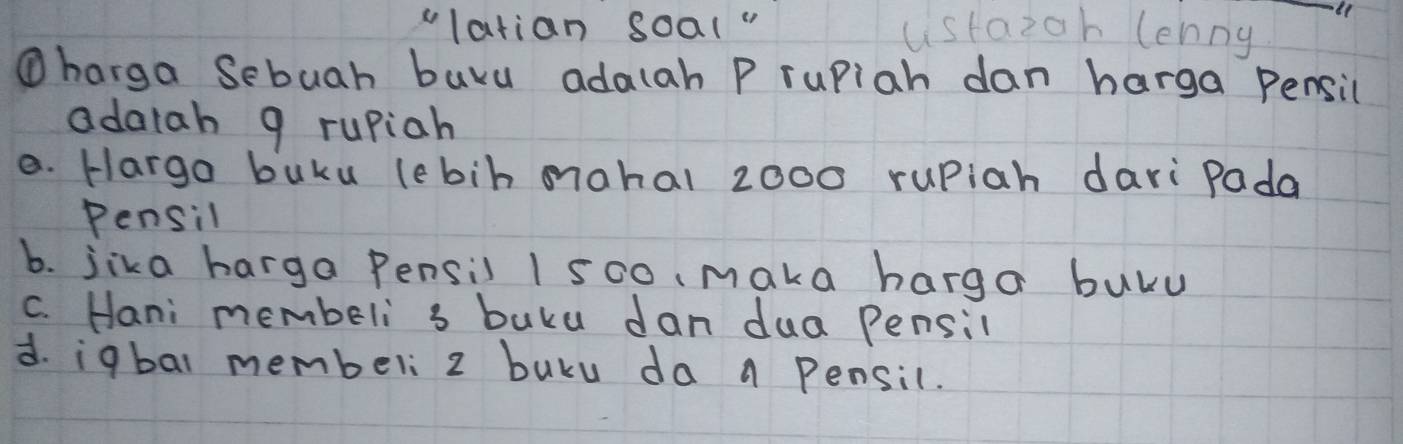 "latian soal" Ustazah lenny
① harga Sebuah buku adalah P rupiah dan harga Pensil
adalah q rupiah
a. Harga buku lebih mahal 2000 rupiah dari pada
Pensil
b. jika harga Pensil 1500, maka harga buku
c. Hani membeli 3 buku dan dua Pensil
d. iqbal membeli 2 buku da n Pensil.